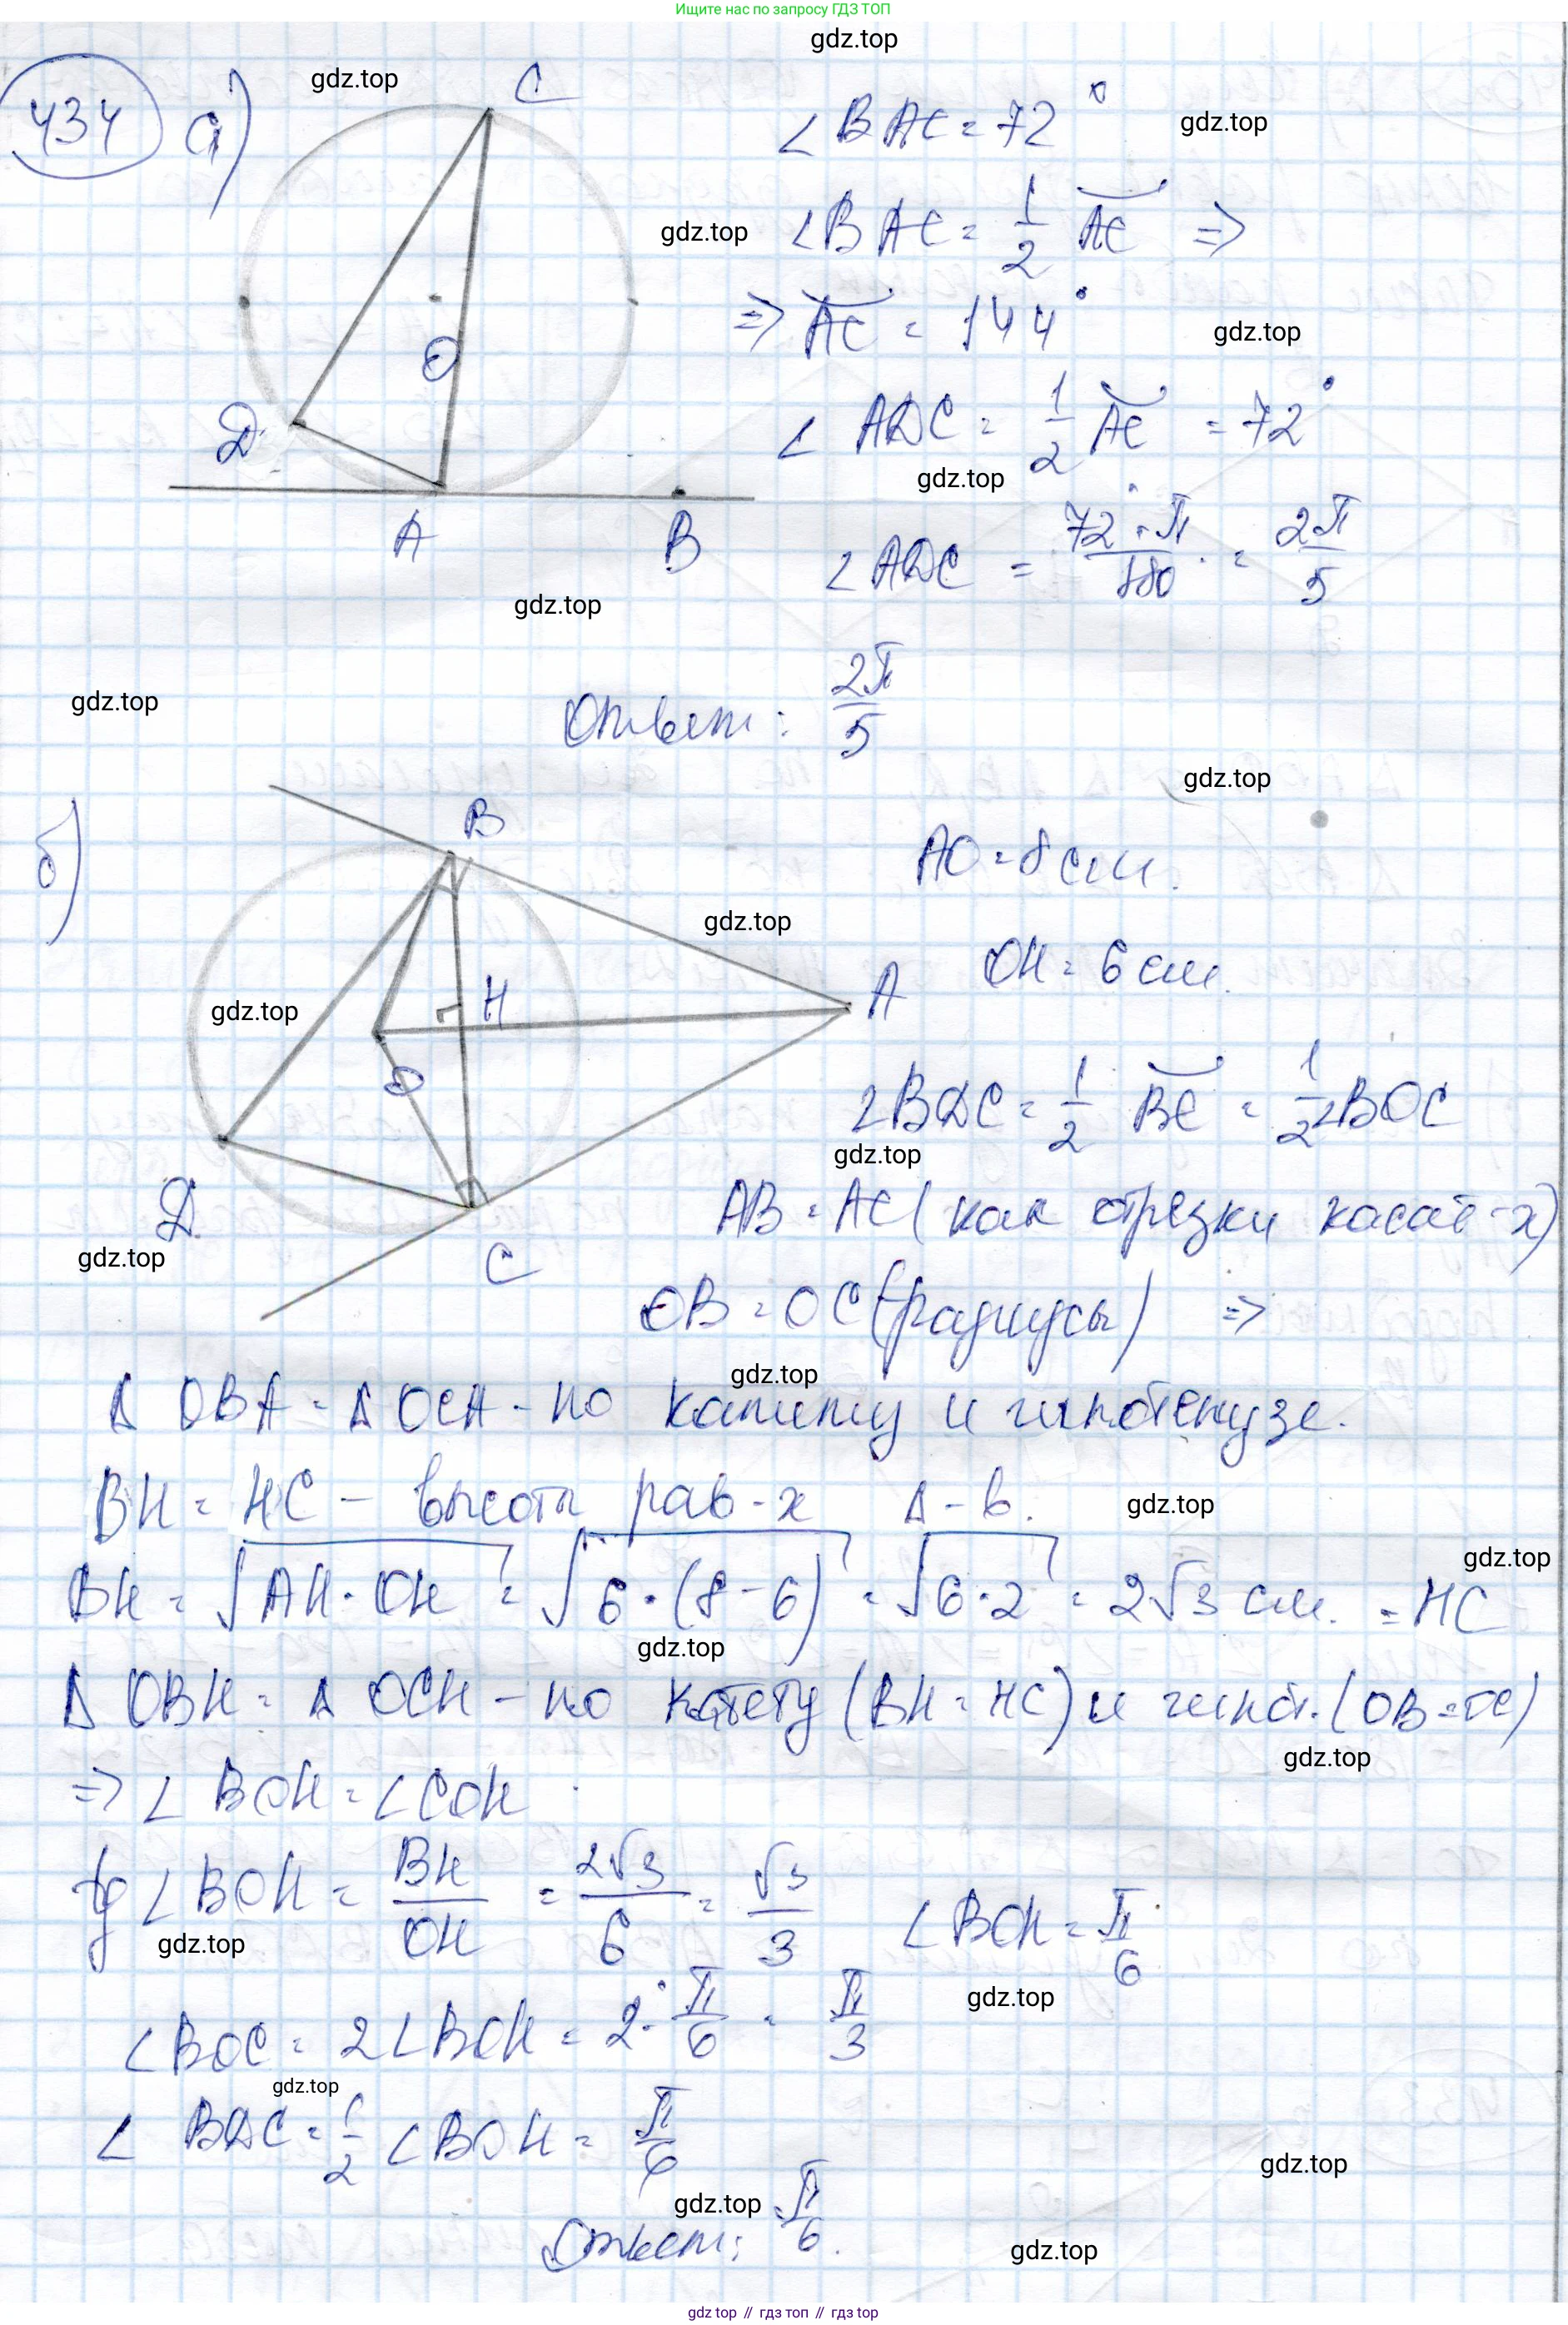 Ищите нас по запросу ГДЗ ТОП
gdz.top
434 а)
gdz.top
C
∠BAC = 72°
gdz.top
gdz.top
∠BAC = 1/2 ⌣AC ⇒
⇒ ⌣AC = 144°
gdz.top
O
D
∠ADC = 1/2 ⌣AC = 72°
gdz.top
A
B
∠ADC = 72·π/180 = 2π/5
gdz.top
gdz.top
Ответ: 2π/5
gdz.top
б)
B
AO = 8 см.
gdz.top
H
A
OH = 6 см.
gdz.top
O
∠BDC = 1/2 ⌣BC = 1/2 ∠BOC
gdz.top
D
AB = AC (как отрезки касат-х)
gdz.top
C
OB = OC (радиусы) ⇒
gdz.top
Δ OBA = Δ OCA - по катету и гипотенузе.
BH = HC - высоты рав-х Δ-в.
gdz.top
gdz.top
BH = √AH·OH = √6·(8-6) = √6·2 = 2√3 см. = HC
gdz.top
Δ OBH = Δ OCH - по катету (BH = HC) и гипот. (OB = OC)
gdz.top
⇒ ∠BOH = ∠COH
tg ∠BOH = BH/OH = 2√3/6 = √3/3 ∠BOH = π/6
gdz.top
gdz.top
∠BOC = 2∠BOH = 2·π/6 = π/3
gdz.top
∠BDC = 1/2 ∠BOH = π/6
gdz.top
gdz.top
Ответ: π/6.
gdz.top
gdz top // гдз топ // gdz top